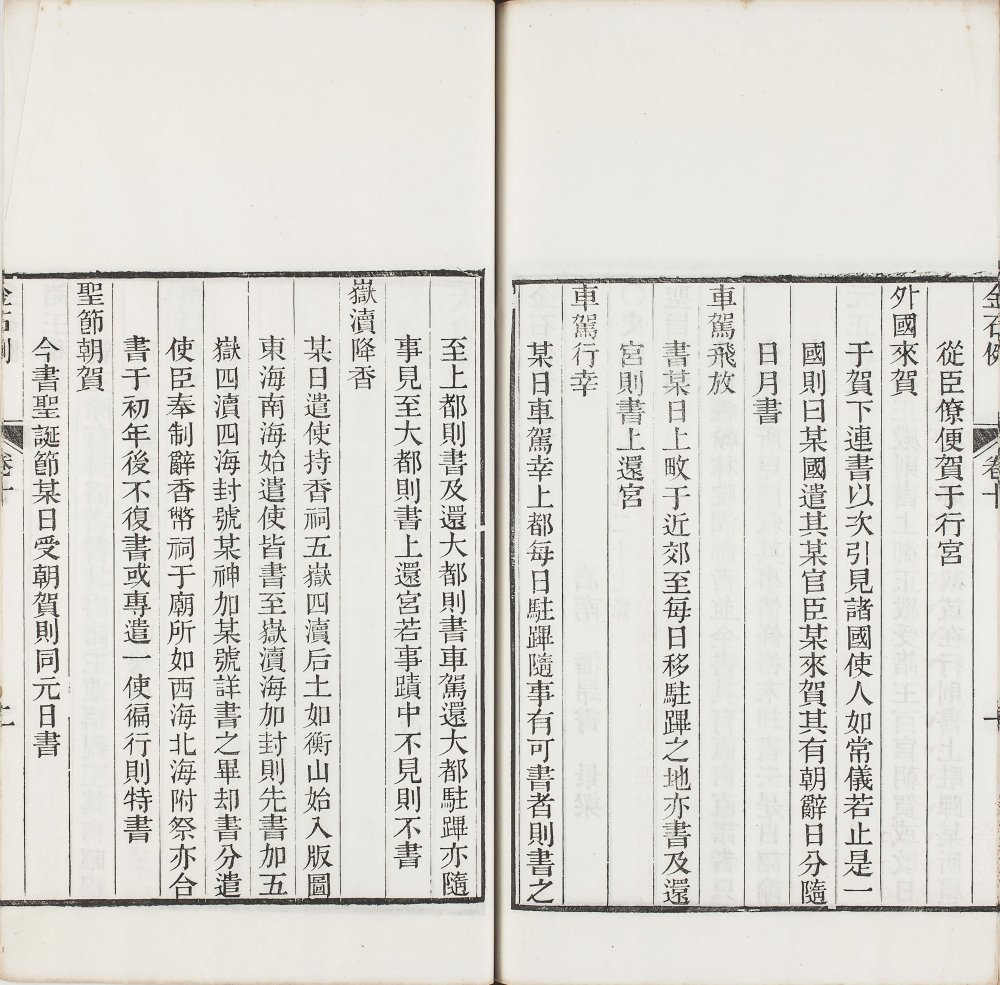 金石例 卷十 十
從臣僚便賀于行宮
外國來賀
于賀下連書以次引見諸國使人如常儀若止是一
國則曰某國遣其某官臣某來賀其有朝辭日分隨
日月書
車駕飛放
書某日上畋于近郊至每日移駐蹕之地亦書及還
宮則書上還宮
車駕行幸
某日車駕幸上都每日駐蹕隨事有可書者則書之
至上都則書及還大都則書車駕還大都駐蹕亦隨
事見至大都則書上還宮若事蹟中不見則不書
嶽瀆降香
某日遣使持香祠五嶽四瀆后土如衡山始入版圖
東海南海始遣使皆書至嶽瀆海加封則先書加五
嶽四瀆四海封號某神加某號詳書之畢却書分遣
使臣奉制辭香幣祠于廟所如西海北海附祭亦合
書于初年後不復書或專遣一使徧行則特書
聖節朝賀
今書聖誕節某日受朝賀則同元日書
金石例 卷十